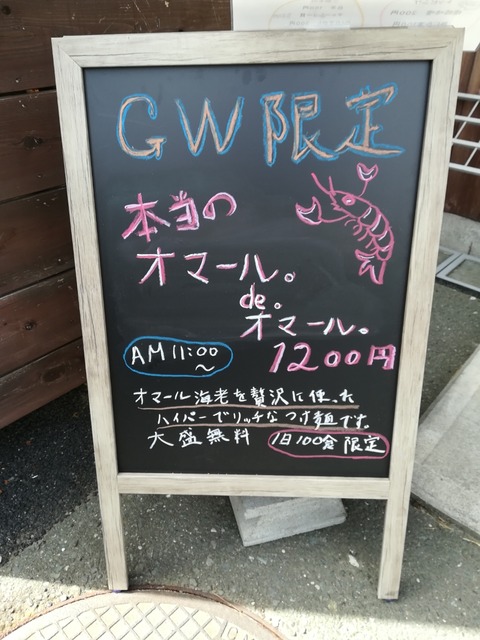 GW限定
本当の
オマール。
de。
オマール。
AM11:00～
1200円
オマール海老を贅沢に使った
ハイパーでリッチなつけ麺です。
大盛無料 1日100食限定